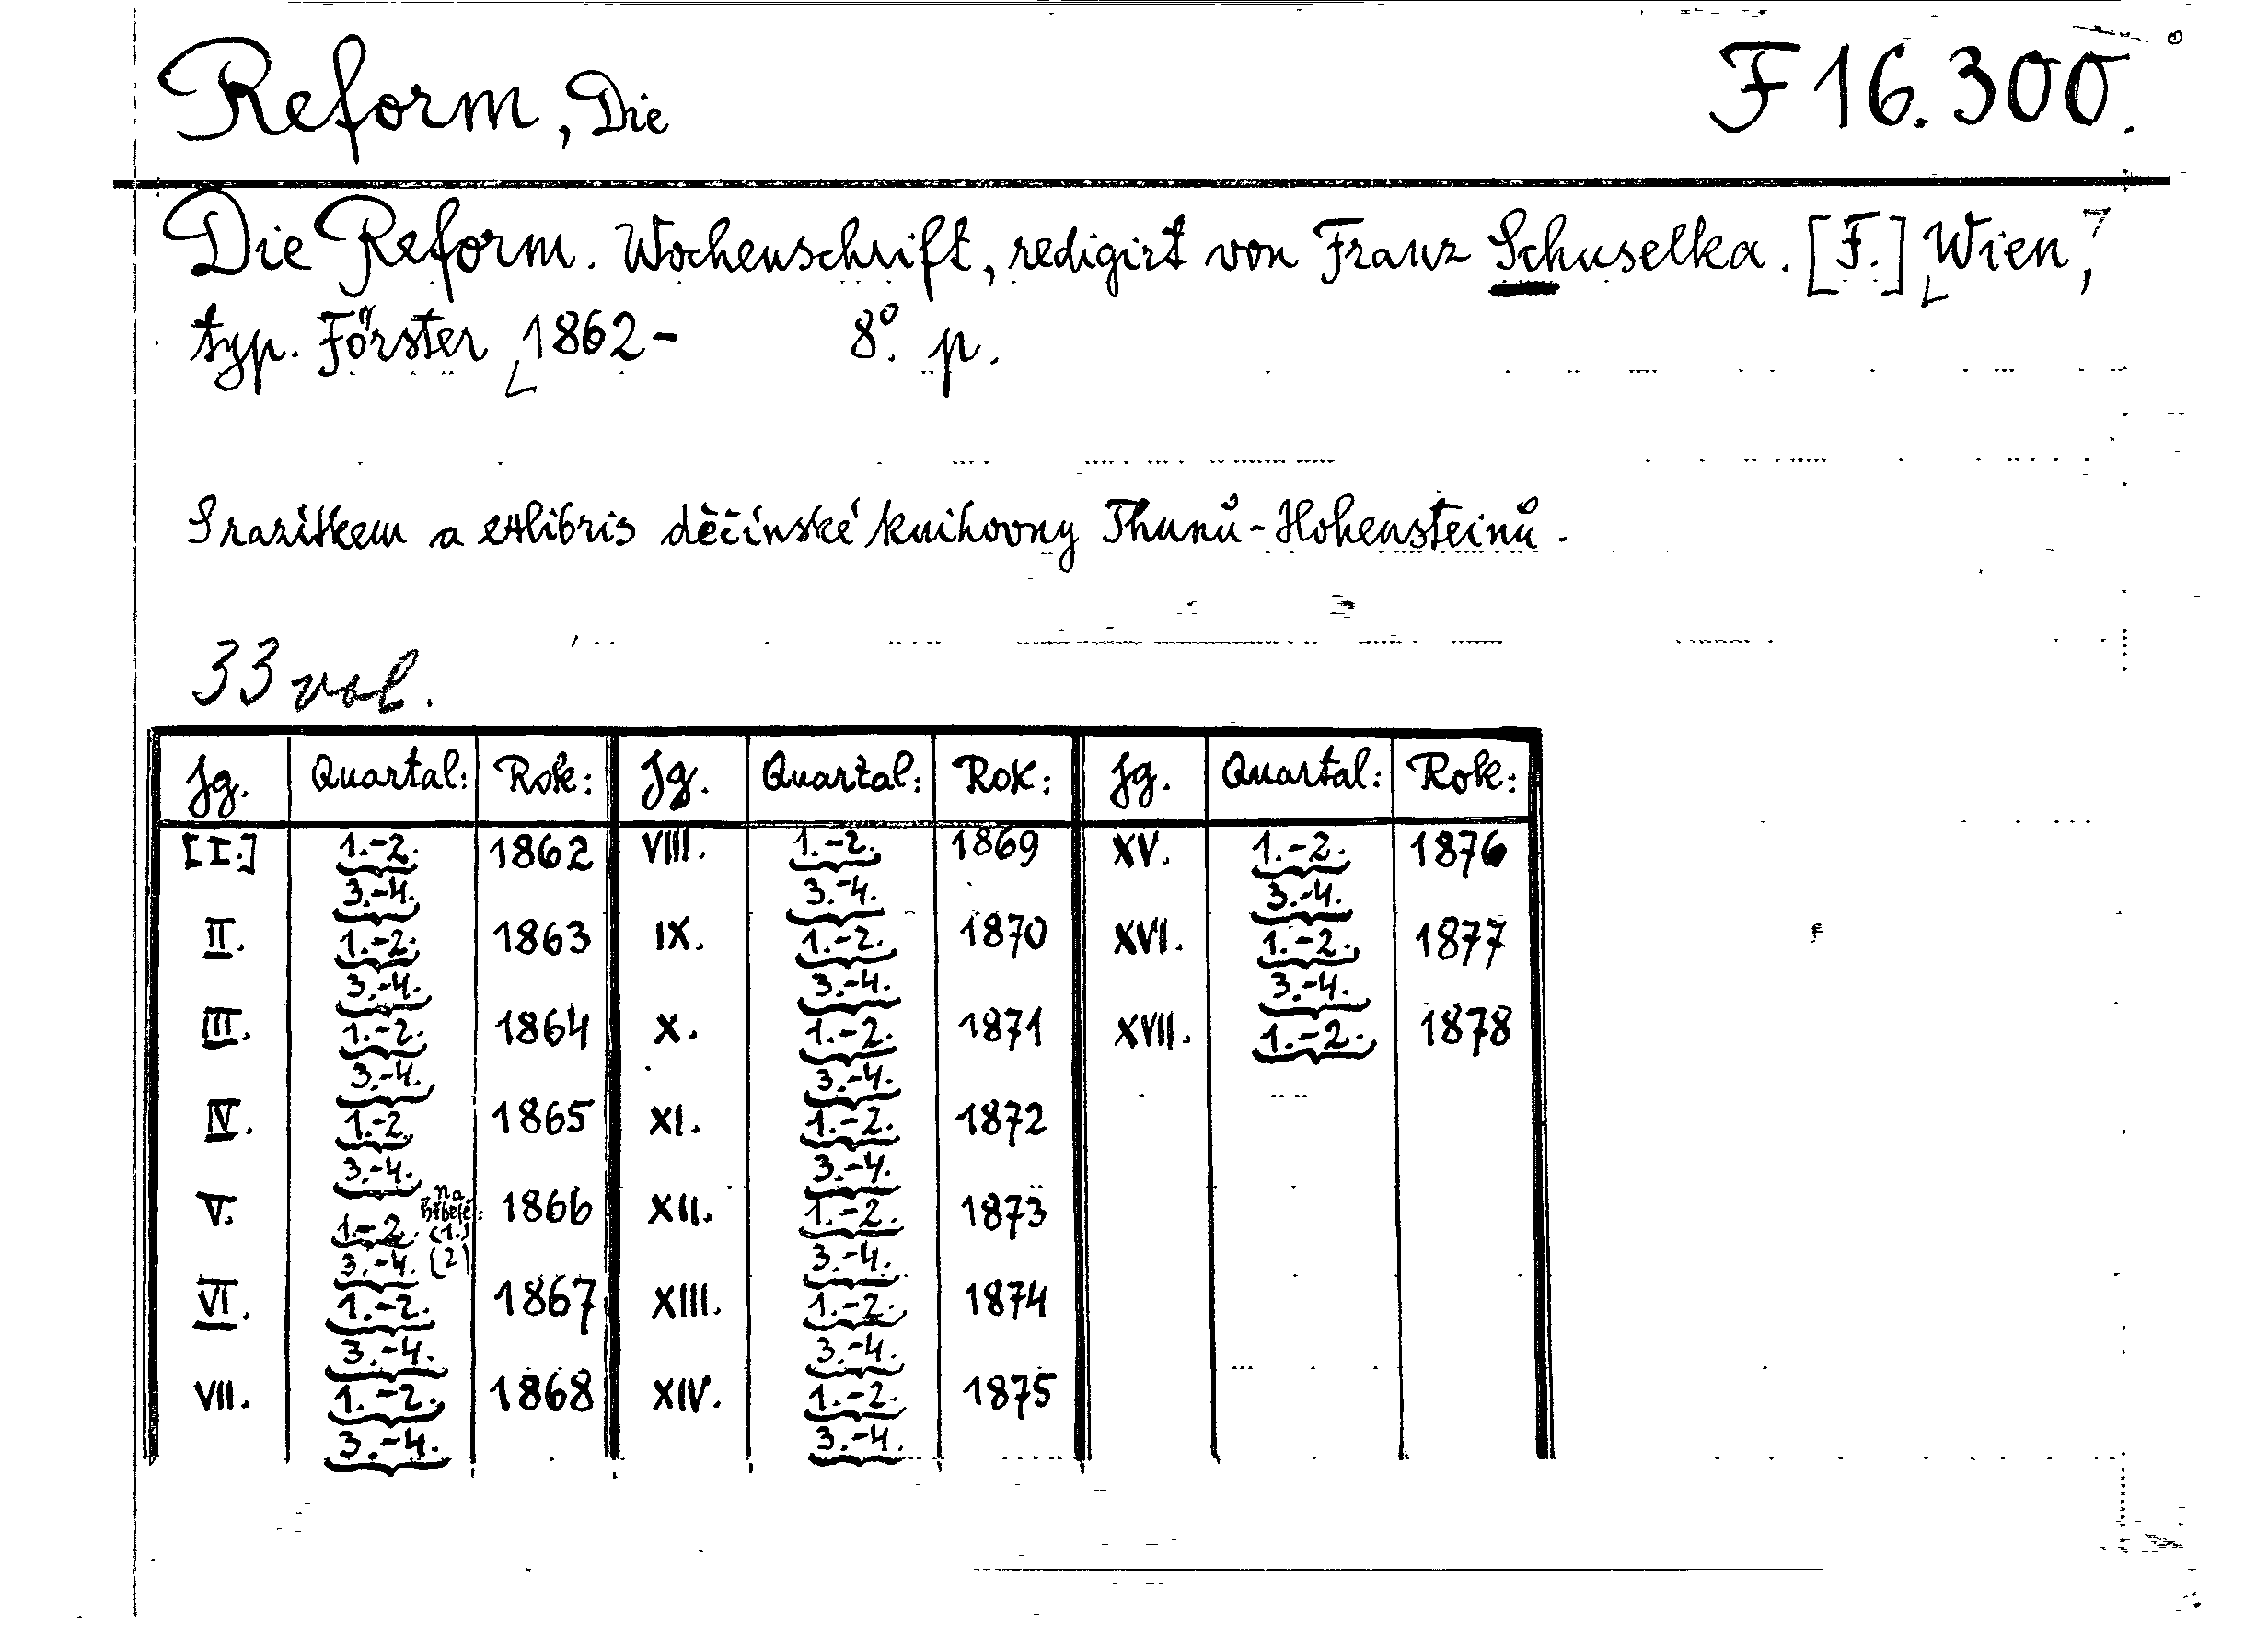 Reform, Die F 16.300.
Die Reform. Wochenschrift, redigirt von Franz Schuselka. [F.] Wien,
typ. Förster 1862- 8°. p.
S razítkem a exlibris děčínské knihovny Thunů-Hohensteinů.
33 vol.
Jg. Quartal: Rok: Jg. Quartal: Rok: Jg. Quartal: Rok:
[I.] 1.-2. 1862 VIII. 1.-2. 1869 XV. 1.-2. 1876
3.-4. 3.-4. 3.-4.
II. 1.-2. 1863 IX. 1.-2. 1870 XVI. 1.-2. 1877
3.-4. 3.-4. 3.-4.
III. 1.-2. 1864 X. 1.-2. 1871 XVII. 1.-2. 1878
3.-4. 3.-4.
IV. 1.-2. 1865 XI. 1.-2. 1872
3.-4. 3.-4.
V. 1.-2. na hřbetě: (1.) 1866 XII. 1.-2. 1873
3.-4. (2) 3.-4.
VI. 1.-2. 1867 XIII. 1.-2. 1874
3.-4. 3.-4.
VII. 1.-2. 1868 XIV. 1.-2. 1875
3.-4. 3.-4.